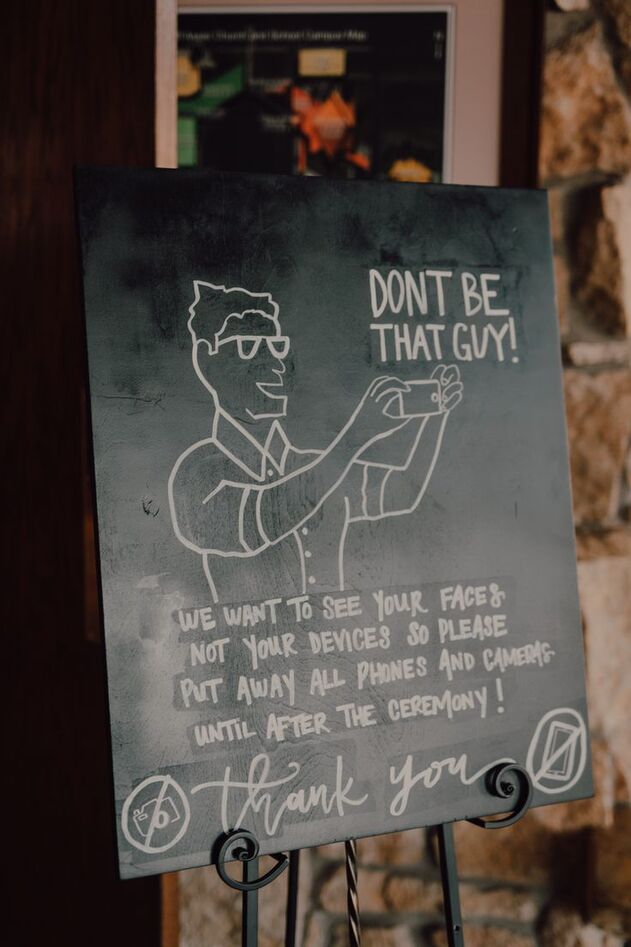 School Campus Map
DONT BE
THAT GUY!
WE WANT TO SEE YOUR FACES
NOT YOUR DEVICES SO PLEASE
PUT AWAY ALL PHONES AND CAMERAS
UNTIL AFTER THE CEREMONY!
thank you